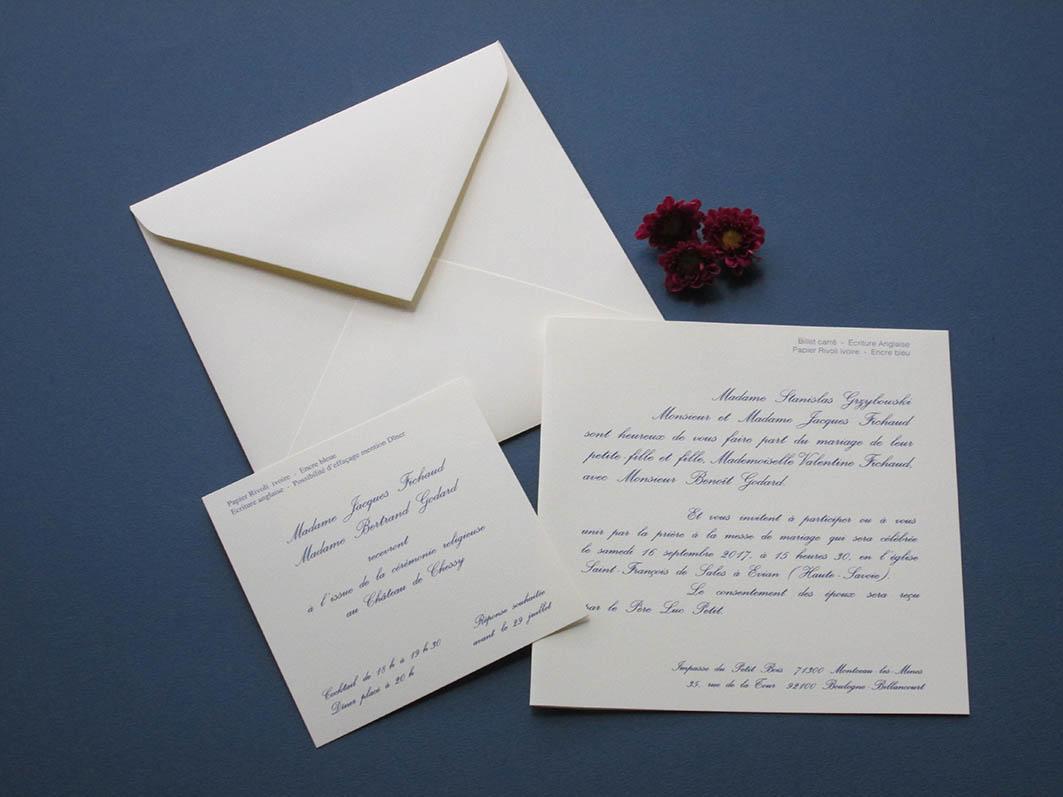 Papier Rivoli ivoire - Encre bleue
Ecriture anglaise - Possibilité d'effaçage mention Dîner
Madame Jacques Fichaud
Madame Bertrand Godard
recevront
à l'issue de la cérémonie religieuse
au Château de Chessy
Réponse souhaitée
avant le 29 juillet
Cocktail de 18 h à 19 h 30
Dîner placé à 20 h
Billet carré - Ecriture Anglaise
Papier Rivoli ivoire - Encre bleu
Madame Stanislas Grzybowski
Monsieur et Madame Jacques Fichaud
sont heureux de vous faire part du mariage de leur
petite-fille et fille, Mademoiselle Valentine Fichaud,
avec Monsieur Benoît Godard.
Et vous invitent à participer ou à vous
unir par la prière à la messe de mariage qui sera célébrée
le samedi 16 septembre 2017, à 15 heures 30, en l'église
Saint-François de Sales à Evian (Haute-Savoie).
Le consentement des époux sera reçu
par le Père Luc Petit.
Impasse du Petit Bois 71300 Montceau-les-Mines
35, rue de la Tour 92100 Boulogne-Billancourt